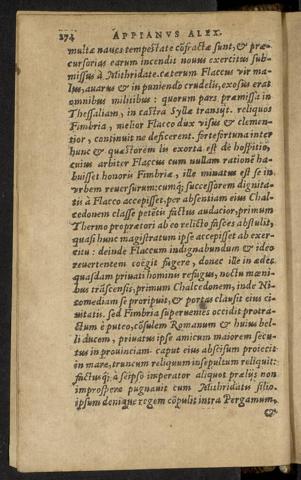 274 APPIANVS ALEX.
multæ naues tempestate cōfractæ sunt, & præ-
cursorias earum incendit nouus exercitus sub-
missus à Mithridate. cæterum Flaccus vir ma-
lus, auarus & in puniendo crudelis, exosus erat
omnibus militibus: quorum pars præmissa in
Thessaliam, in castra Syllæ transijt. reliquos
Fimbria, melior Flacco dux visus & clemen-
tior, continuit ne deficerent. forte fortuna inter
hunc & quæstorem lis exorta est de hospitio,
cuius arbiter Flaccus cum nullam rationē ha-
buisset honoris Fimbriæ, ille minatus est se in
vrbem reuersurum: cumq; successorem dignita-
tis à Flacco accepisset, per absentiam eius Chal-
cedonem classe petētis factus audacior, primum
Thermo proprætori ab eo relicto fasces abstulit,
quasi hunc magistratum ipse accepisset ab exer-
citu: deinde Flaccum indignabundum & ideo
reuertentem coëgit fugere, donec ille in ædes
quasdam priuati hominis refugus, noctu mœni-
bus trāscensis, primum Chalcedonem, inde Ni-
comediam se proripuit, & portas clausit eius ci-
uitatis. sed Fimbria superueniēs occidit protra-
ctum è puteo, cōsulem Romanum & huius bel-
li ducem, priuatus ipse amicum maiorem secu-
tus in prouinciam. caput eius abscisum proiecit
in mare, truncum reliquum insepultum reliquit:
factusq; à seipso imperator aliquot prælijs non
improspere pugnauit cum Mithridatis filio.
ipsum denique regem cōpulit intra Pergamum,
&